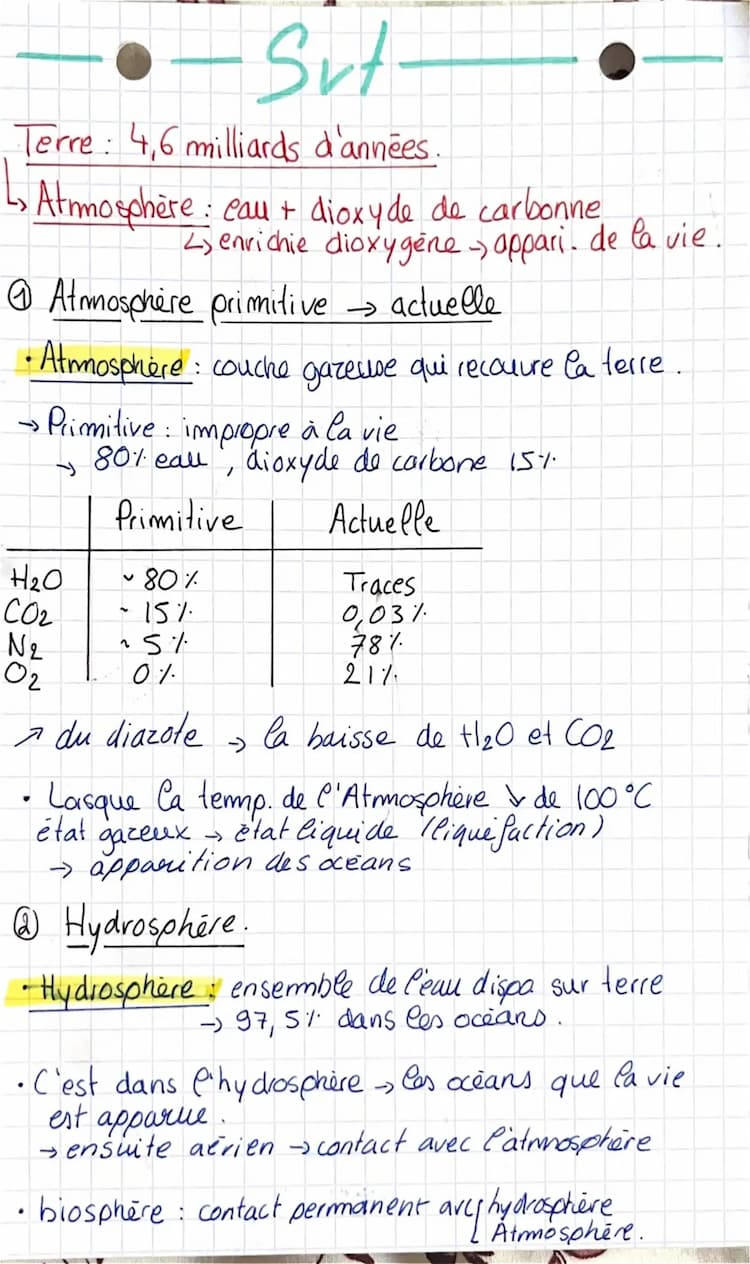 Svt
Terre : 4,6 milliards d'années.
↳ Atmosphère : eau + dioxyde de carbonne
↳ enrichie dioxygène → appari. de la vie.
① Atmosphère primitive → actuelle
• Atmosphère : couche gazeuse qui recouvre la terre.
→ Primitive : impropre à la vie
→ 80% eau, dioxyde de carbone 15%
Primitive Actuelle
H2O ~ 80% Traces
CO2 ~ 15% 0,03%
N2 ~ 5% 78%
O2 0% 21%
↗ du diazote → la baisse de H2O et CO2
• Lorsque la temp. de l'Atmosphère ↘ de 100°C
état gazeux → état liquide (liquéfaction)
→ apparition des océans
② Hydrosphère.
• Hydrosphère : ensemble de l'eau dispo sur terre
→ 97,5% dans les océans.
• C'est dans l'hydrosphère → les océans que la vie
est apparue.
→ ensuite aérien → contact avec l'atmosphère
• biosphère : contact permanent avc hydrosphère
Atmosphère.